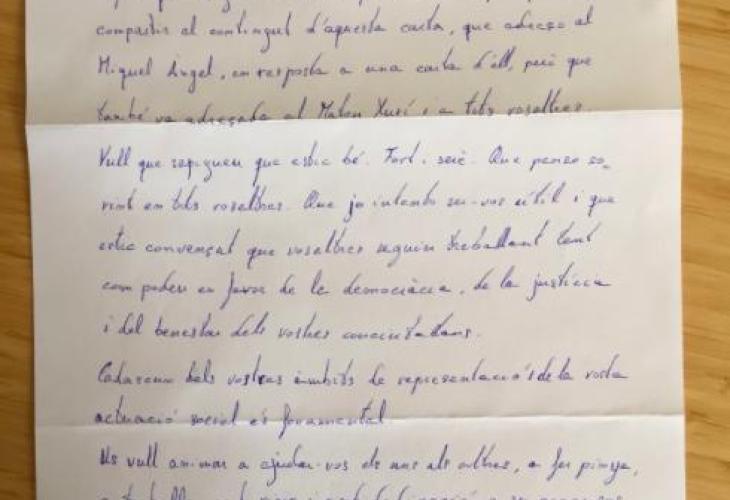 compartir el contingut d'aquesta carta, que adreço al
Miquel Àngel, en resposta a una carta d'ell, però que
també va adreçada al Mateu Xurí i a tots vosaltres.
Vull que sapigueu que estic bé. Fort i serè. Que penso so-
vint en tots vosaltres. Que jo intento ser-vos útil i que
estic convençut que vosaltres seguiu treballant tant
com podeu en favor de la democràcia, de la justícia
i del benestar dels vostres conciutadans.
Cadascun dels vostres àmbits de representació i de la vostra
actuació social és fonamental.
Us vull animar a ajudar-vos els uns als altres, a fer pinya,